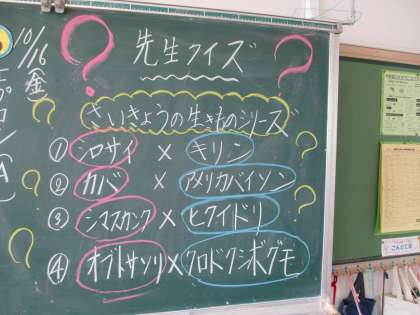 10/16
(金)
先生クイズ
さいきょうの生きものシリーズ
① シロサイ × キリン
② カバ × アメリカバイソン
③ シマスカンク × ヒクイドリ
④ オブトサソリ × クロドクシボグモ
こんだて表